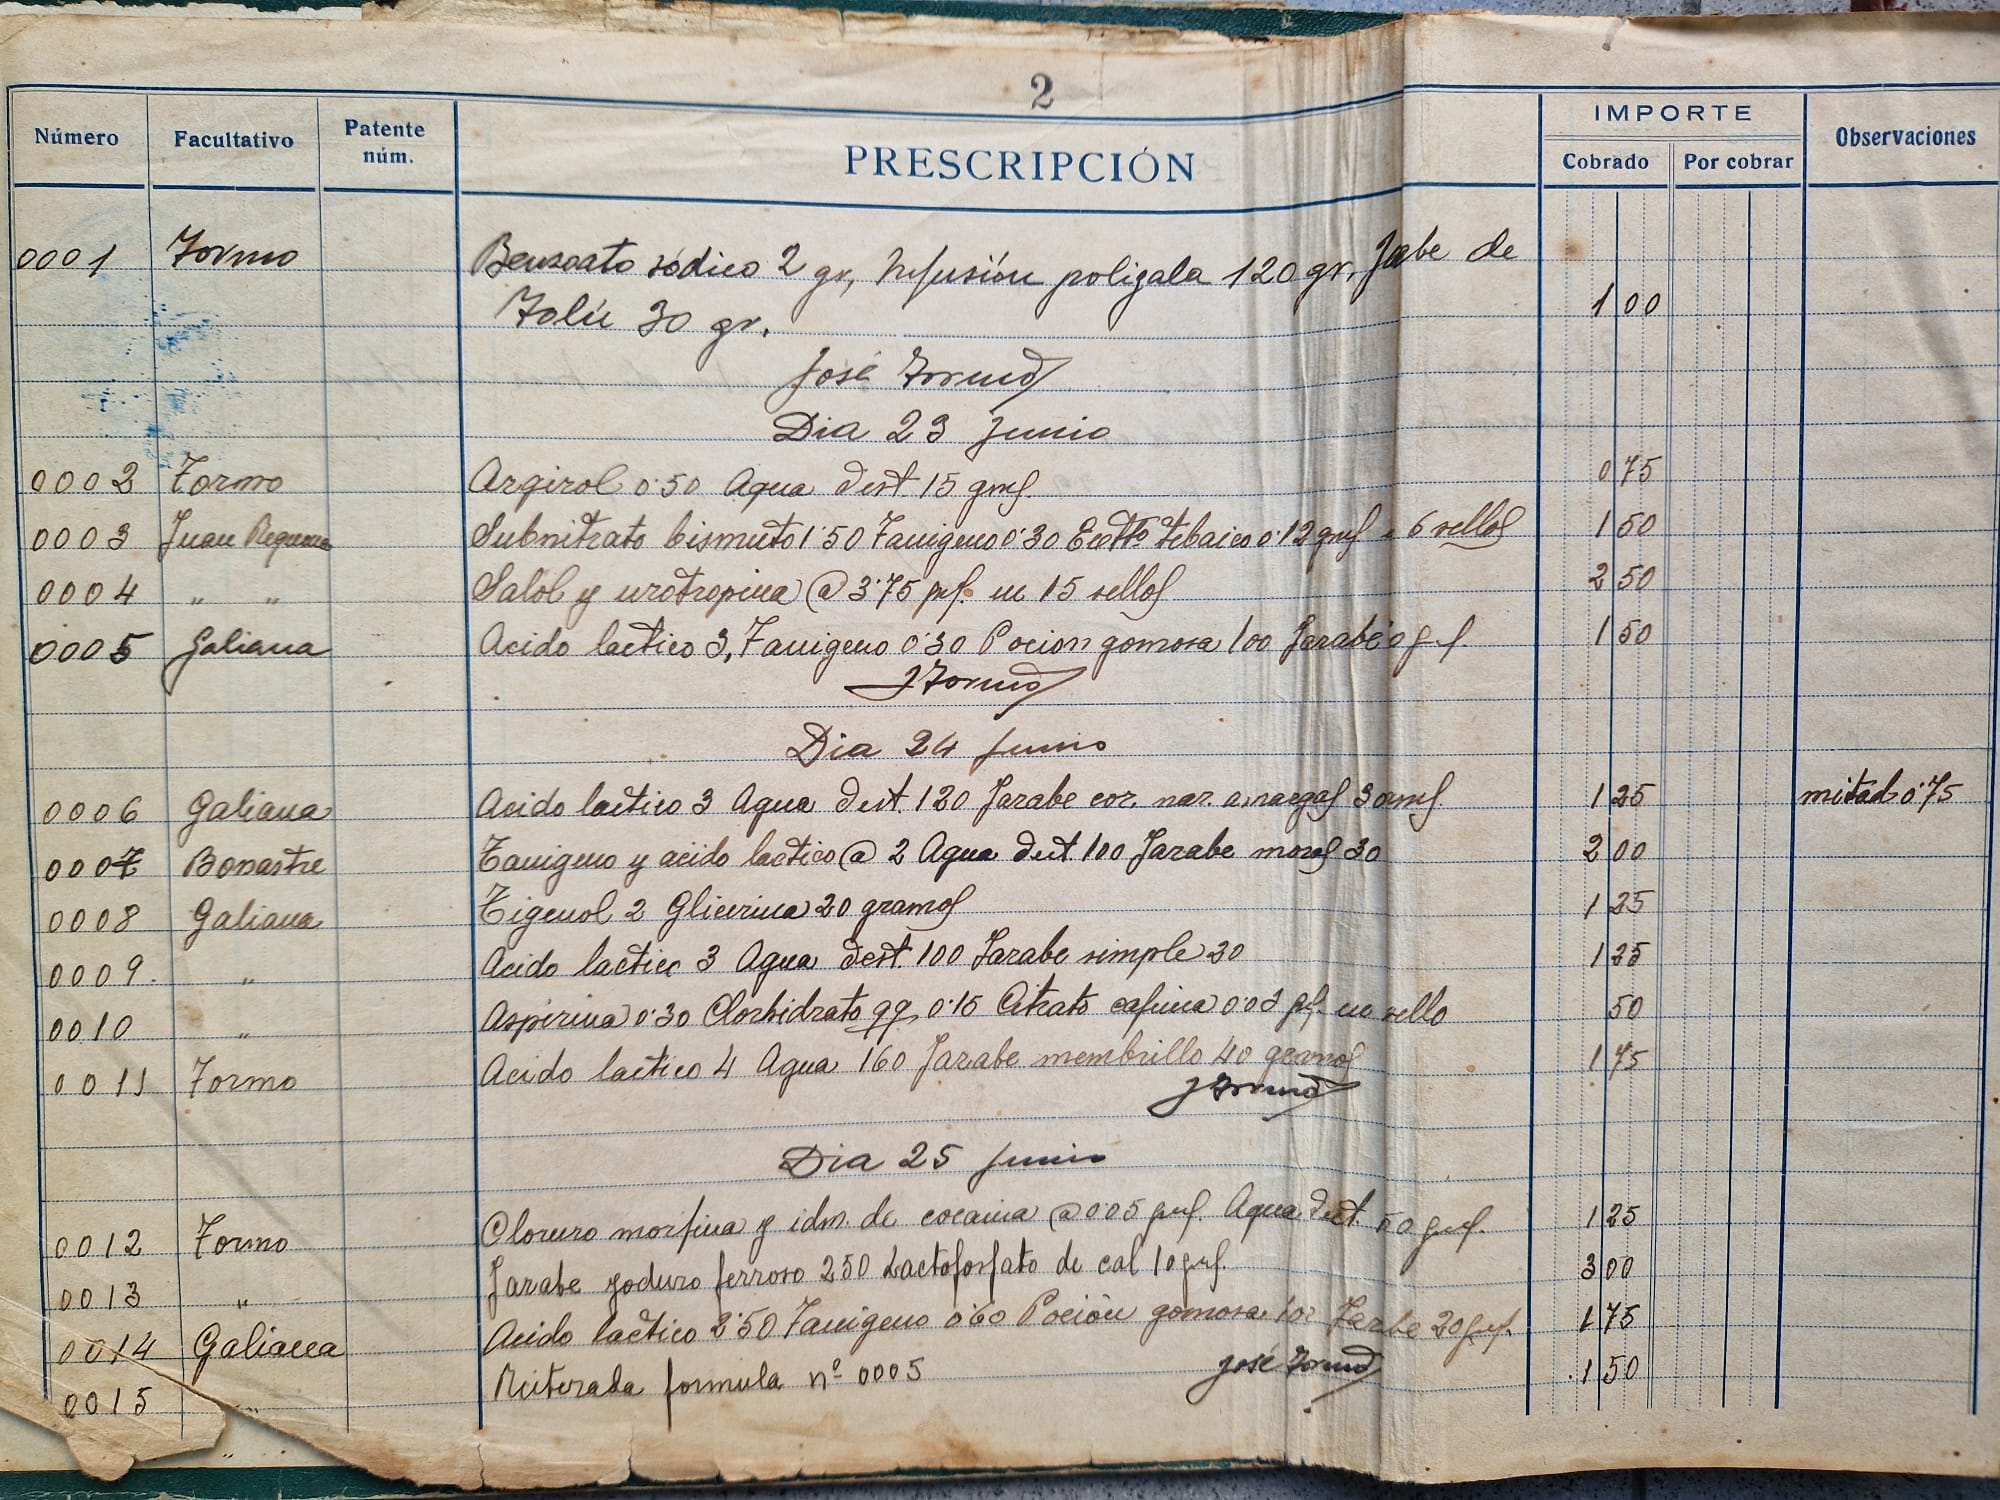 2
Número Facultativo Patente núm. PRESCRIPCIÓN IMPORTE Cobrado Por cobrar Observaciones
0001 Tormo Benzoato sódico 2 gr, Infusión poligala 120 gr, Jabe de
Tolú 30 gr. 1 00
José Tormo
Dia 23 Junio
0002 Tormo Argirol 0'50 Agua dest. 15 gms. 0 75
0003 Juan Requena Subnitrato bismuto 1'50 Tanigeno 0'30 Extto tebaico 0'12 gms 6 sellos 1 50
0004 " " Salol y urotropina @ 3'75 gms. en 15 sellos 2 50
0005 Galiana Acido lactico 3, Tanigeno 0'30 Pocion gomosa 100 Jarabe 1 50
J Tormo
Dia 24 Junio
0006 Galiana Acido lactico 3 Agua dest. 120 Jarabe cor. nar. amargas 30 gms. 1 25 mitad 0'75
0007 Bonastre Tanigeno y acido lactico @ 2 Agua dest. 100 Jarabe moras 30 2 00
0008 Galiana Tigenol 2 Glicerina 20 gramos 1 25
0009. " Acido lactico 3 Agua dest. 100 Jarabe simple 30 1 25
0010 " Aspirina 0'30 Clorhidrato qq. 0'15 Citrato cafeina 0'03 gms. un sello 50
0011 Tormo Acido lactico 4 Agua 160 Jarabe membrillo 40 gramos 1 75
J Tormo
Dia 25 Junio
0012 Tormo Cloruro morfina y idm. de cocaina @ 0'05 gms. Agua dest. 50 gms. 1 25
0013 " Jarabe yoduro ferroso 250 Lactofosfato de cal 10 gms. 3 00
0014 Galiana Acido lactico 2'50 Tanigeno 0'60 Poción gomosa Jarbe 20 gms. 1 75
0015 " Reiterada formula nº 0005 1 50
José Tormo
"